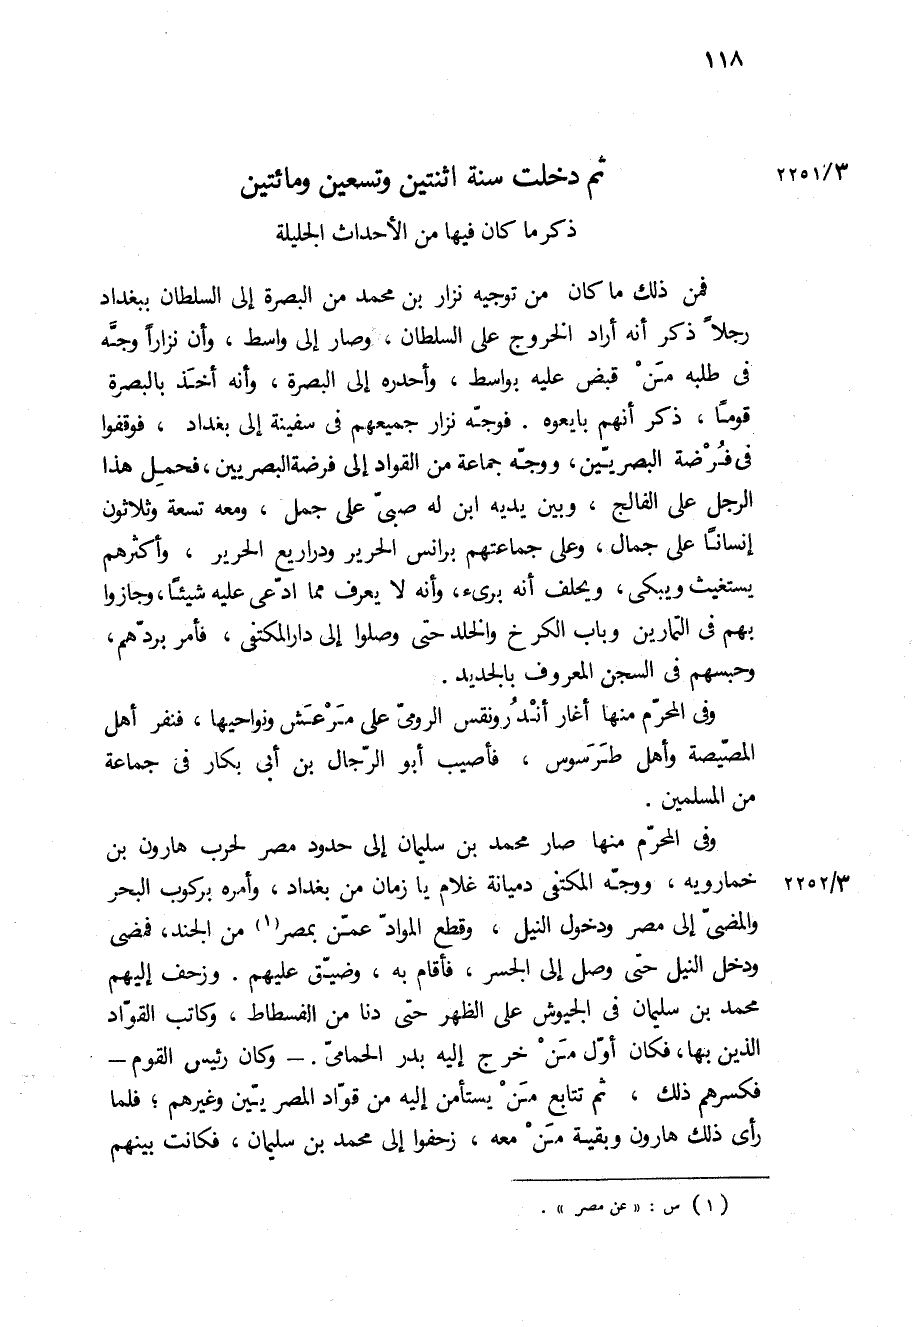 ١١٨
٢٢٥١/٣
ثم دخلت سنة اثنتين وتسعين ومائتين
ذكر ما كان فيها من الأحداث الجليلة
فمن ذلك ما كان من توجيه نزار بن محمد من البصرة إلى السلطان ببغداد
رجلاً ذكر أنه أراد الخروج على السلطان ، وصار إلى واسط ، وأن نزاراً وجَّه
فى طلبه مَنْ قبض عليه بواسط ، وأحدره إلى البصرة ، وأنه أخَذ بالبصرة
قومًا ، ذكر أنهم بايعوه . فوجّه نزار جميعهم فى سفينة إلى بغداد ، فوقفوا
فى فُرْضة البصريّين، ووجّه جماعة من القواد إلى فرضة البصريين ، فحمِل هذا
الرجل على الفالج ، وبين يديه ابن له صبىّ على جمل ، ومعه تسعة وثلاثون
إنسانًا على جمال ، وعلى جماعتهم برانس الحرير ودراريع الحرير ، وأكثرهم
يستغيث ويبكى ، ويحلف أنه برىء، وأنه لا يعرف مما ادّعى عليه شيئًا، وجازوا
بهم فى التمّارين وباب الكرخ والخلد حتى وصلوا إلى دار المكتفى ، فأمر بردّهم،
وحبسهم فى السجن المعروف بالجديد .
وفى المحرّم منها أغار أنْدُرونقس الرومىّ على مَرْعَش ونواحيها ، فنفر أهل
المصّيصة وأهل طَرَسوس ، فأصيب أبو الرّجال بن أبى بكار فى جماعة
من المسلمين .
وفى المحرّم منها صار محمد بن سليمان إلى حدود مصر لحرب هارون بن
خمارويه ، ووجّه المكتفى دميانة غلام يا زمان من بغداد ، وأمره بركوب البحر
٢٢٥٢/٣
والمضىّ إلى مصر ودخول النيل ، وقطع الموادّ عمّن بمصر(١) من الجند، فمضى
ودخل النيل حتى وصل إلى الجسر ، فأقام به ، وضيّق عليهم . وزحف إليهم
محمد بن سليمان فى الجيوش على الظهر حتى دنا من الفسطاط ، وكاتب القوّاد
الذين بها، فكان أوّل مَنْ خرج إليه بدر الحمامىّ .- وكان رئيس القوم -
فكسرهم ذلك ، ثم تتابع مَنْ يستأمن إليه من قوّاد المصريّين وغيرهم ؛ فلما
رأى ذلك هارون وبقية مَنْ معه ، زحفوا إلى محمد بن سليمان ، فكانت بينهم
(١) س : « عن مصر » .